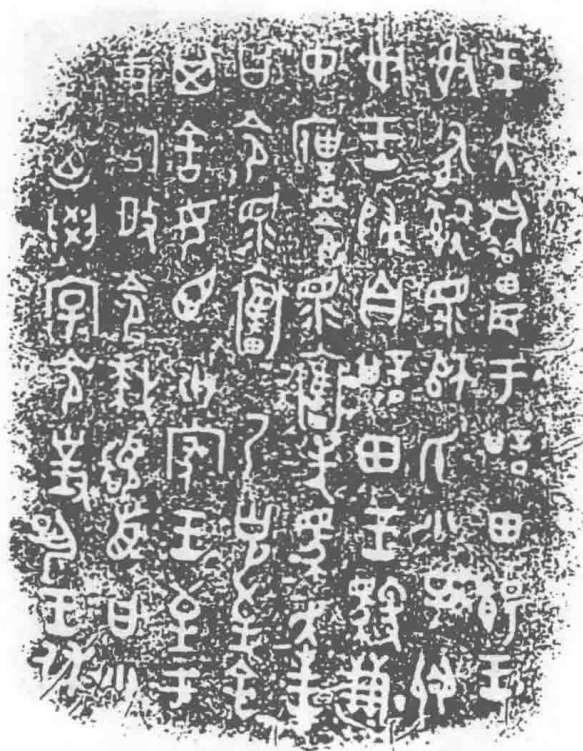 王大耤農于諆田餳王
射有司眔師氏小子會
射王歸自諆田王馭溓
中僕令眔奮先馬走王
曰令眔奮乃克至余
其舍女臣十家王至于
溓宮令拜稽首曰小
子廼學令對揚王休